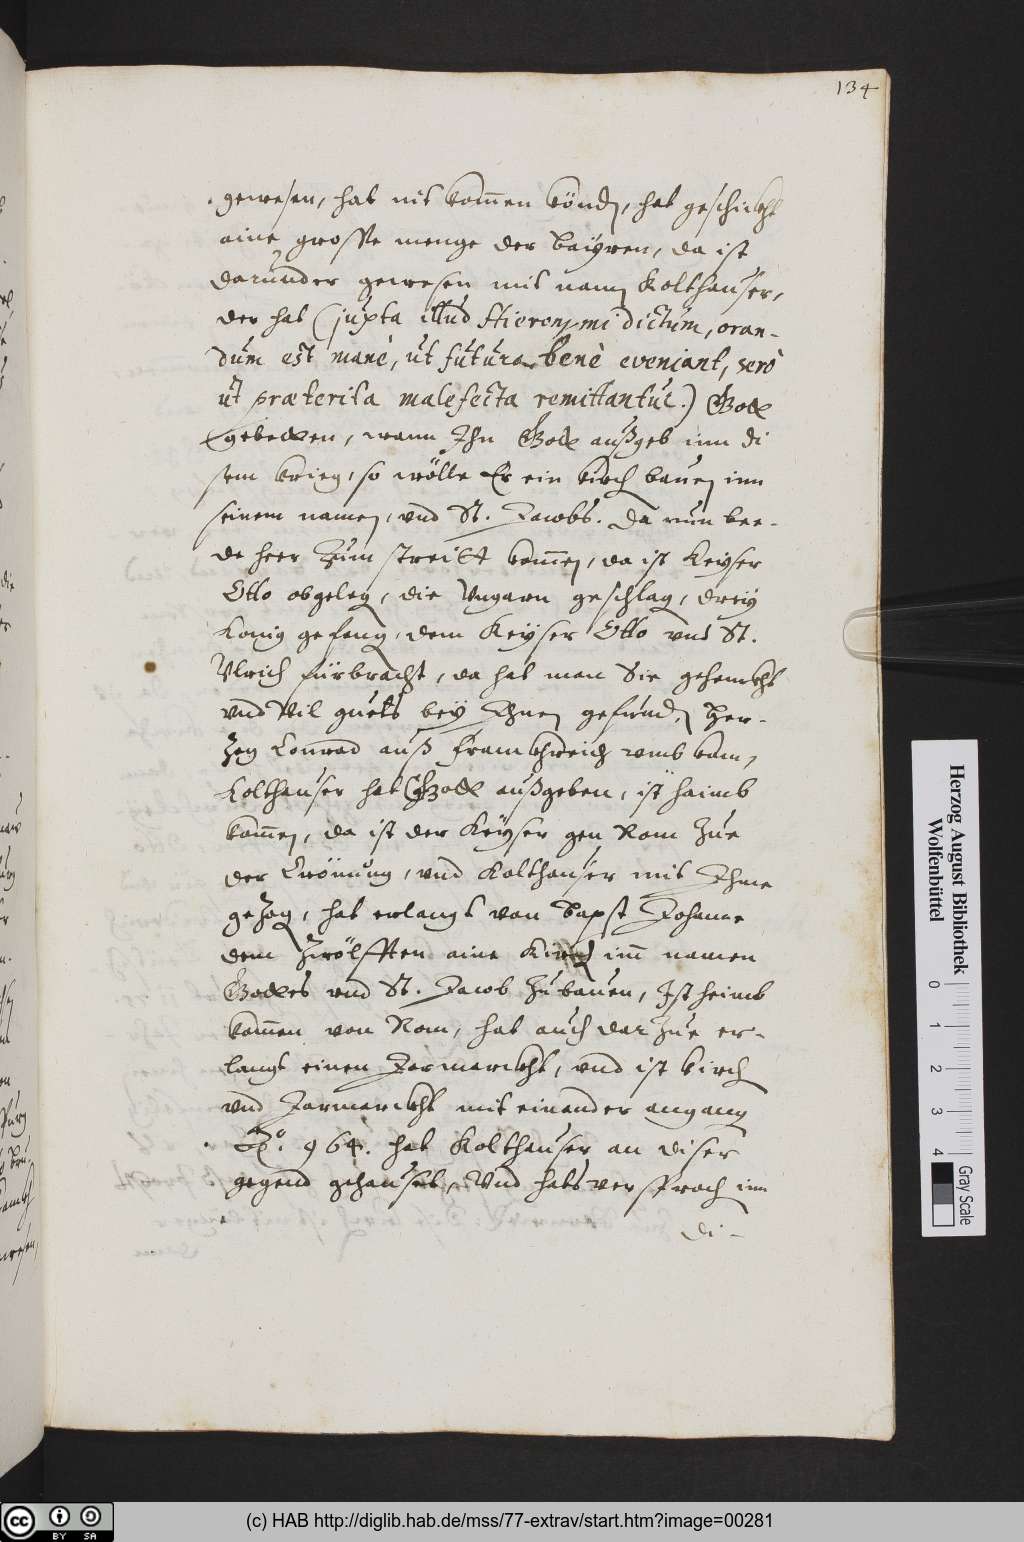 134
gewesen, hat nit kom̄en könd̄, hat geschickht
aine grosse menge der Baÿren, da ist
darunder gewesen mit nam̄ Kolthauser,
der hat (juxta illud Hieronymi dictum, oran-
dum est manè, ut futura benè eveniant, serò
ut præterita malefecta remittantur.) Gott
gebetten, wann Ihn Gott außgeb inn di
sem krieg, so wölle Er ein kirch bauen inn
seinem namen, vnd St. Jacobs. Da nun bee-
de heer zum streitt kom̄en, da ist Keyser
Otto obgeleg, die Vngarn geschlag, dreÿ
König gefang, dem Keÿser Otto vnd St.
Vlrich fürbracht, da hat man Sie gehenckht
vnd vil guets beÿ Ihnen gefund, Her-
zog Conrad auß Franckhreich vmb kam,
Kolthauser hat Gott außgeben, ist haimb
kom̄en, da ist der Keÿser gen Rom zue
der Crönung, vnd Kolthauser mit Ihme
gezog, hat erlangt von Bapst Johanne
dem Zwölfften aine Kirch im̄ namen
Gottes vnd St. Jacob zu bauen, Ist heimb
kom̄en von Rom, hat auch darzue er-
langt einen Jarmarckht, vnd ist kirch
vnd Jarmarckht mit einander angang
Aº. 964. hat Kolthauser an diser
gegend gehauset, Vnd hats versprach im
di-
Herzog August Bibliothek
Wolfenbüttel
0 1 2 3 4
Gray Scale
cc BY SA
(c) HAB http://diglib.hab.de/mss/77-extrav/start.htm?image=00281